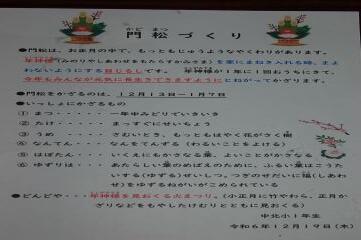 門松づくり
かど まつ
●門松は、お正月の中で、もっともじゅうようなやくわりがあります。
年神様(みのりやしあわせをもたらすかみさま)を家にまねき入れる時、まよ
わないようにする目じるしです。 年神様が1年に1回おうちにきて、
今年もみんなが元気に長生きできますようにとねがってかざります。
●門松をかざるのは、12月13日~1月7日
●いっしょにかざるもの
① まつ・・・・・一年中みどりでいきいき
② たけ・・・・・まっすぐにせいちょう
③ うめ・・・・・さむいとき、もっともはやく花がさく樹
④ なんてん・・・なんをてんずる(わるいことをよける)
⑤ はぼたん・・・いくえにもかさなる葉、よいことがかさなる
⑥ ゆずりは・・・あたらしい葉のめばえのために、ふるい葉はこうた
いする(ゆずる)せいしつ。つぎのせだいに福(しあわ
せ)をゆずるねがいがこめられている
●どんどや・・・年神様を見おくる火まつり。(小正月に竹やわら、正月か
ざりなどをもやしたけむりとともに見おくる)
中北小1年生
令和6年12月19日(木)